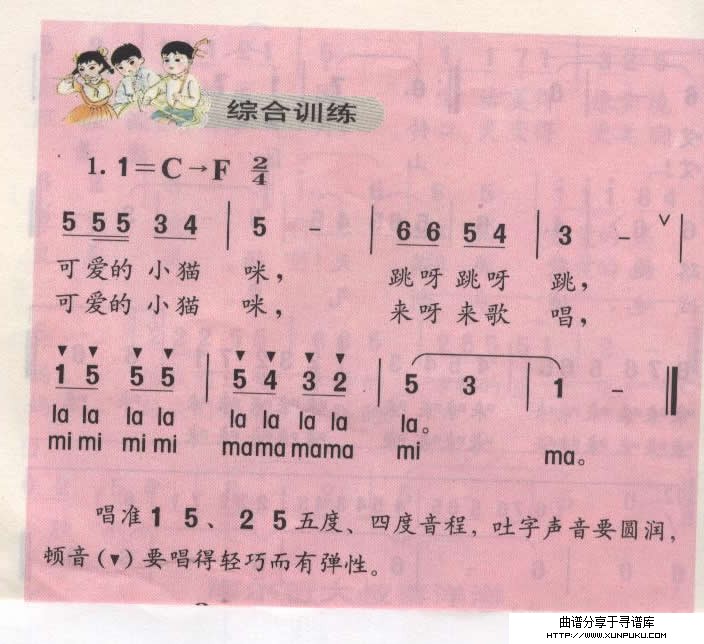 综合训练
1. 1=C→F 2/4
5 5 5 3 4 | 5 - | 6 6 5 4 | 3 - ∨ |
可爱的 小猫 咪， 跳呀 跳呀 跳，
可爱的 小猫 咪， 来呀 来歌 唱，
▼ ▼ ▼ ▼ ▼ ▼ ▼ ▼
1 5 5 5 | 5 4 3 2 | 5 3 | 1 - ‖
la la la la la la la la la。
mi mi mi mi ma ma ma ma mi ma。
唱准1 5、2 5五度、四度音程，吐字声音要圆润，
顿音（▼）要唱得轻巧而有弹性。
曲谱分享于寻谱库
HTTP://WWW.XUNPUKU.COM